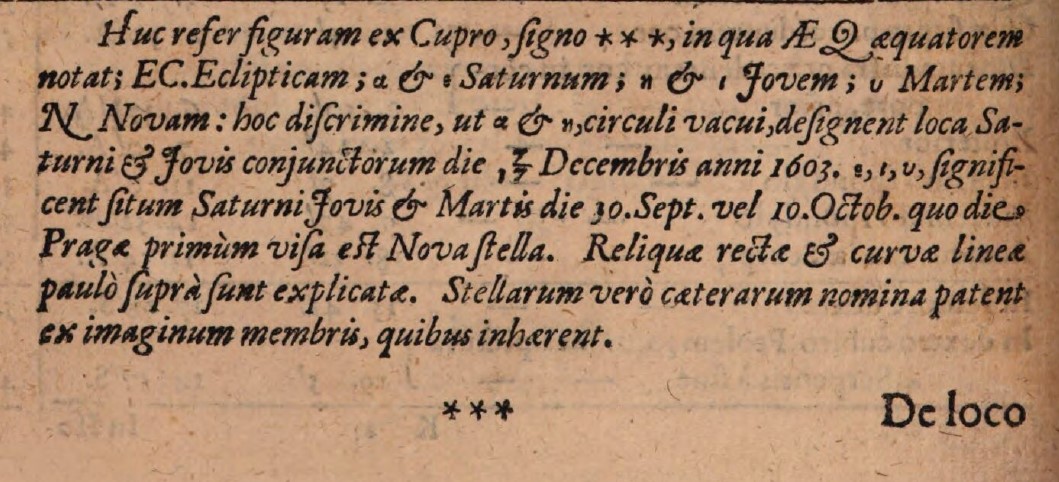 Huc refer figuram ex Cupro, ſigno * * *, in qua Æ Q æquatorem
notat; EC. Eclipticam; α & ε Saturnum; η & ι Jovem; υ Martem;
N Novam: hoc diſcrimine, ut α & η, circuli vacui, deſignent loca Sa-
turni & Jovis conjunctorum die Decembris anni 1603. ε, ι, υ, ſignifi-
cent ſitum Saturni Jovis & Martis die 30. Sept. vel 10. Octob. quo die
Pragæ primùm viſa eſt Nova ſtella. Reliquæ rectæ & curvæ lineæ
paulò ſuprà ſunt explicatæ. Stellarum verò cæterarum nomina patent
ex imaginum membris, quibus inhærent.
* * * De loco